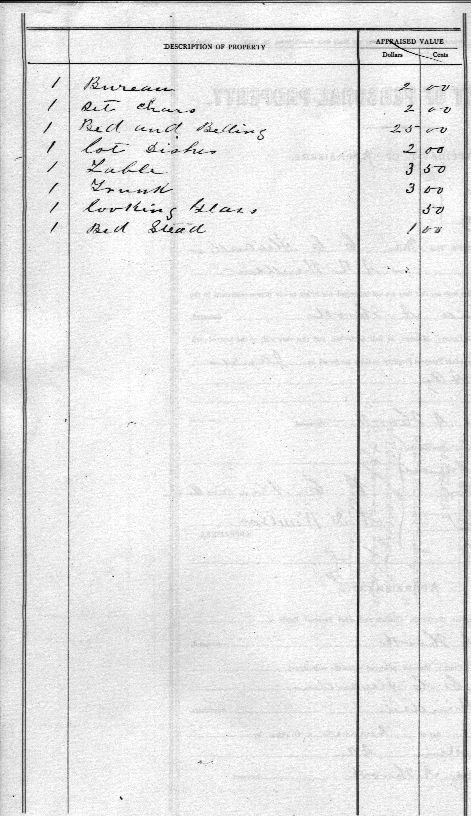 DESCRIPTION OF PROPERTY APPRAISED VALUE
Dollars Cents
1 Bureau 2 00
1 Set Chars 2 00
1 Bed and Beding 25 00
1 lot Dishes 2 00
1 Table 3 50
1 Trunk 3 00
1 looking Glass 50
1 Bed Stead 1 00